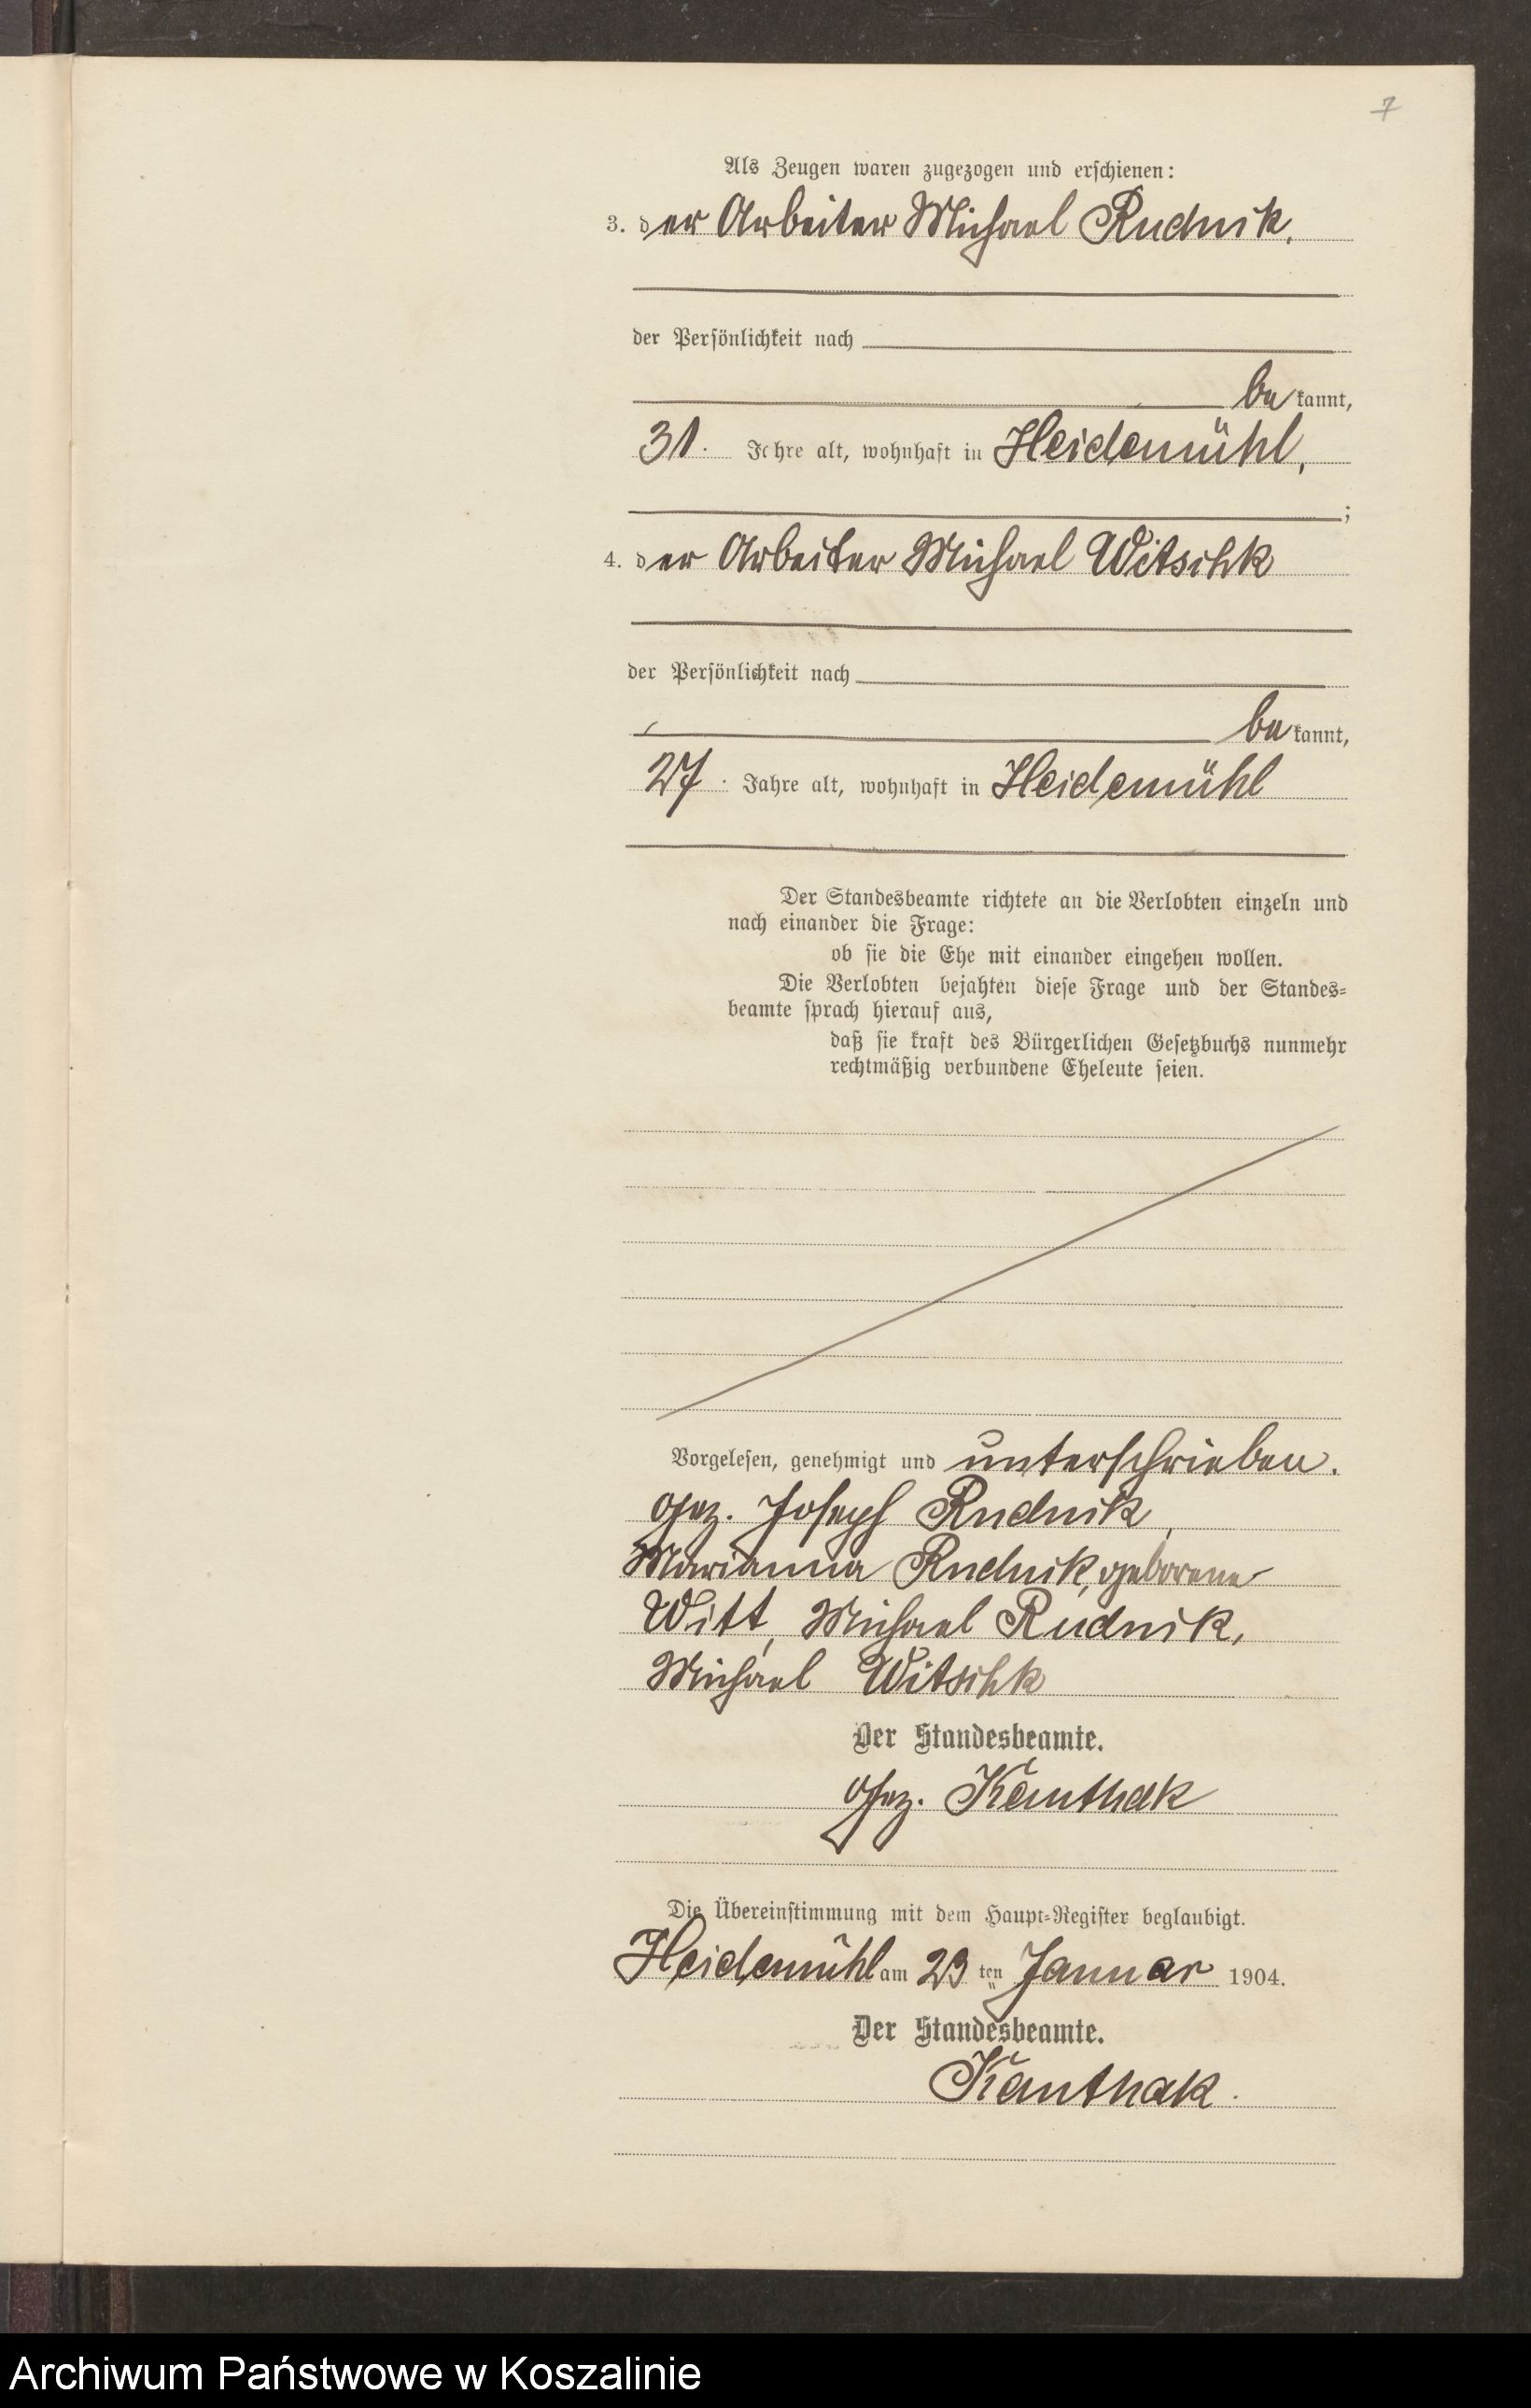 7
Als Zeugen waren zugezogen und erschienen:
3. der Arbeiter Michael Rudnik,
der Persönlichkeit nach
be kannt,
31. Jahre alt, wohnhaft in Heidemühl,
;
4. der Arbeiter Michael Witschk
der Persönlichkeit nach
be kannt,
27. Jahre alt, wohnhaft in Heidemühl
Der Standesbeamte richtete an die Verlobten einzeln und
nach einander die Frage:
ob sie die Ehe mit einander eingehen wollen.
Die Verlobten bejahten diese Frage und der Standes-
beamte sprach hierauf aus,
daß sie kraft des Bürgerlichen Gesetzbuchs nunmehr
rechtmäßig verbundene Eheleute seien.
Vorgelesen, genehmigt und unterschrieben.
gez. Joseph Rudnik,
Marianna Rudnik, geborene
Witt, Michael Rudnik,
Michael Witschk
Der Standesbeamte.
gez. Kanthak
Die Übereinstimmung mit dem Haupt-Register beglaubigt.
Heidemühl am 23 ten Januar 1904.
Der Standesbeamte.
Kanthak.
Archiwum Państwowe w Koszalinie